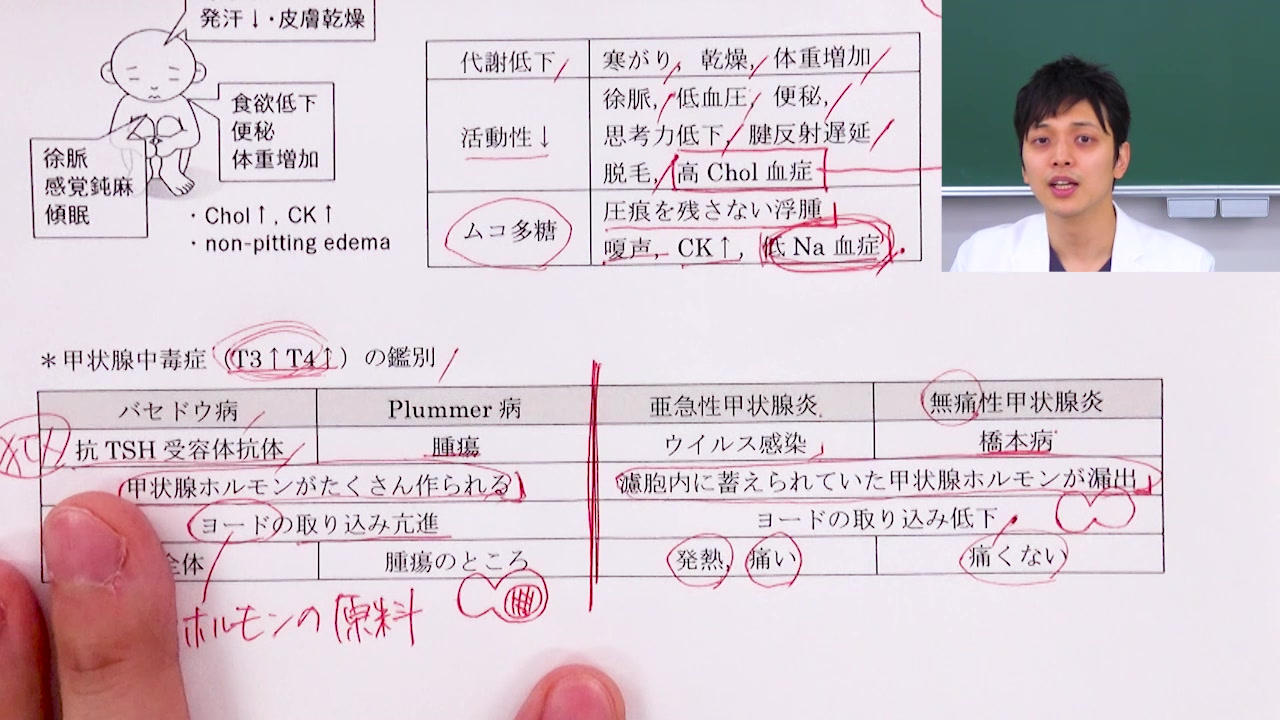 発汗↓・皮膚乾燥
食欲低下
便秘
体重増加
徐脈
感覚鈍麻
傾眠
・Chol↑, CK↑
・non-pitting edema
代謝低下 寒がり, 乾燥, 体重増加
活動性↓ 徐脈, 低血圧, 便秘,
思考力低下, 腱反射遅延
脱毛, 高 Chol 血症
ムコ多糖 圧痕を残さない浮腫
嗄声, CK↑, 低 Na 血症
＊甲状腺中毒症（T3↑T4↑）の鑑別
バセドウ病 Plummer 病 亜急性甲状腺炎 無痛性甲状腺炎
抗 TSH 受容体抗体 腫瘍 ウイルス感染 橋本病
甲状腺ホルモンがたくさん作られる 濾胞内に蓄えられていた甲状腺ホルモンが漏出
ヨードの取り込み亢進 ヨードの取り込み低下
全体 腫瘍のところ 発熱, 痛い 痛くない
ホルモンの原料